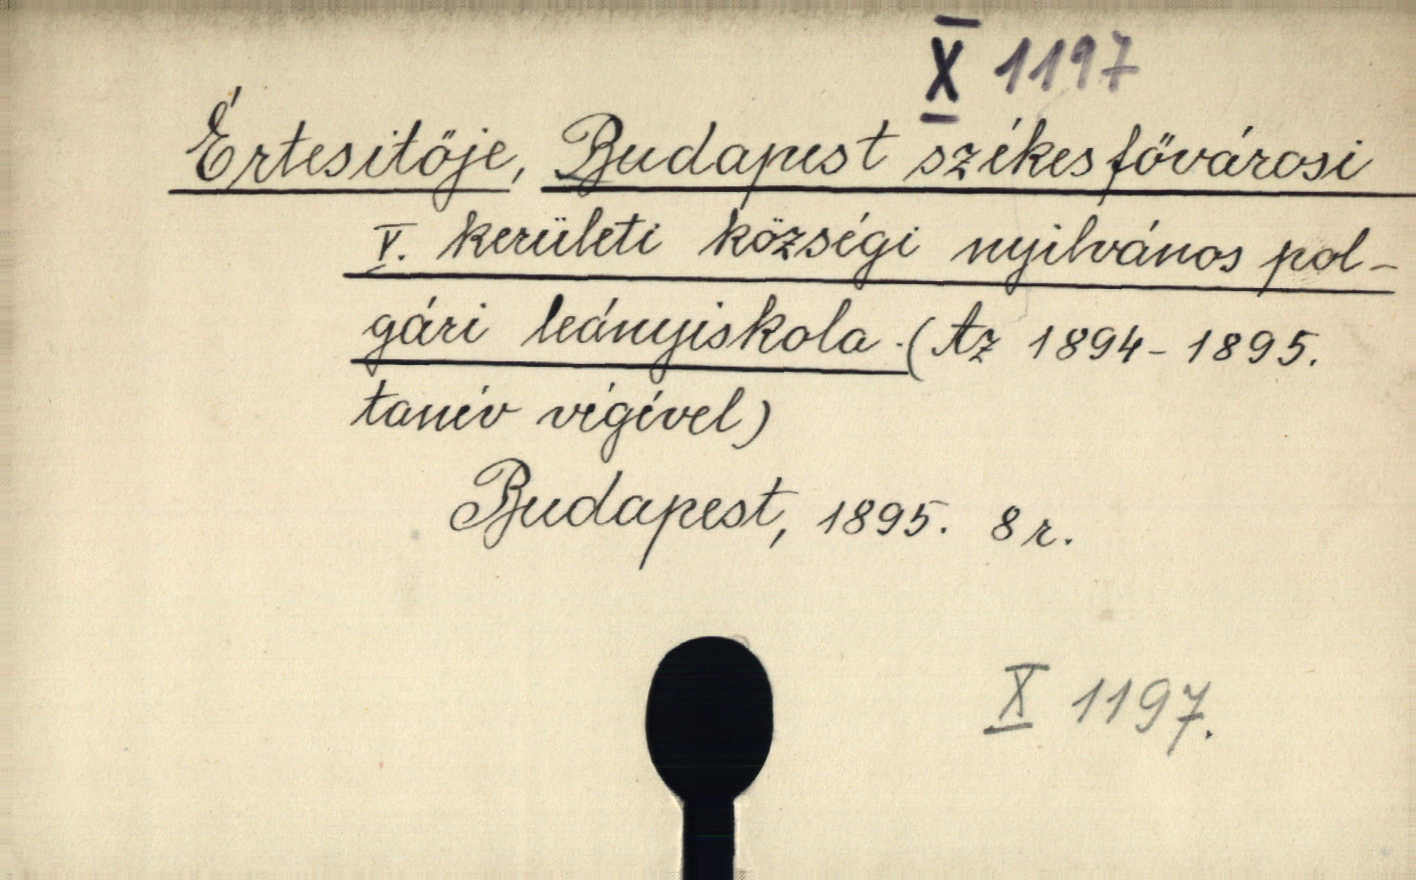 X 1197
Értesitője, Budapest székesfővárosi
V. kerületi községi nyilvános pol-
gári leányiskola. (Az 1894-1895.
tanév végével)
Budapest, 1895. 8r.
X 1197.